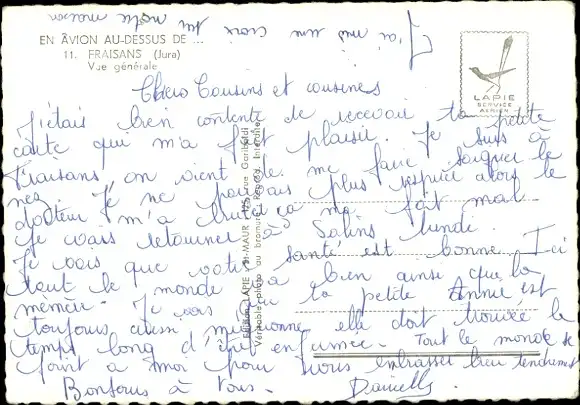 J'ai mis une croix sur notre maison
EN AVION AU-DESSUS DE ...
11. FRAISANS (Jura)
Vue générale
LAPIE
SERVICE
AÉRIEN
Chers Cousins et cousines
J'étais bien contente de recevoir ta petite
carte qui m'a fait plaisir. Je suis à
Fraisans, on vient de me faire soigner le
nez. Je ne pouvais plus respirer alors le
docteur m'a brulé ça me fait mal.
Je vais retourner à Salins lundi.
Je vois que votre santé est bonne. Ici
tout le monde va bien ainsi que la
mémère. Je vois que la petite Annie est
toujours aussi mignonne elle doit trouver le
temps long d'être enfermée. Tout le monde se
joint à moi pour vous embrasser bien tendrement
Bonjour à tous. Danielle.
Editions LAPIE ST-MAUR rue Garibaldi
Véritable photo au bromure Reprod. Interdite